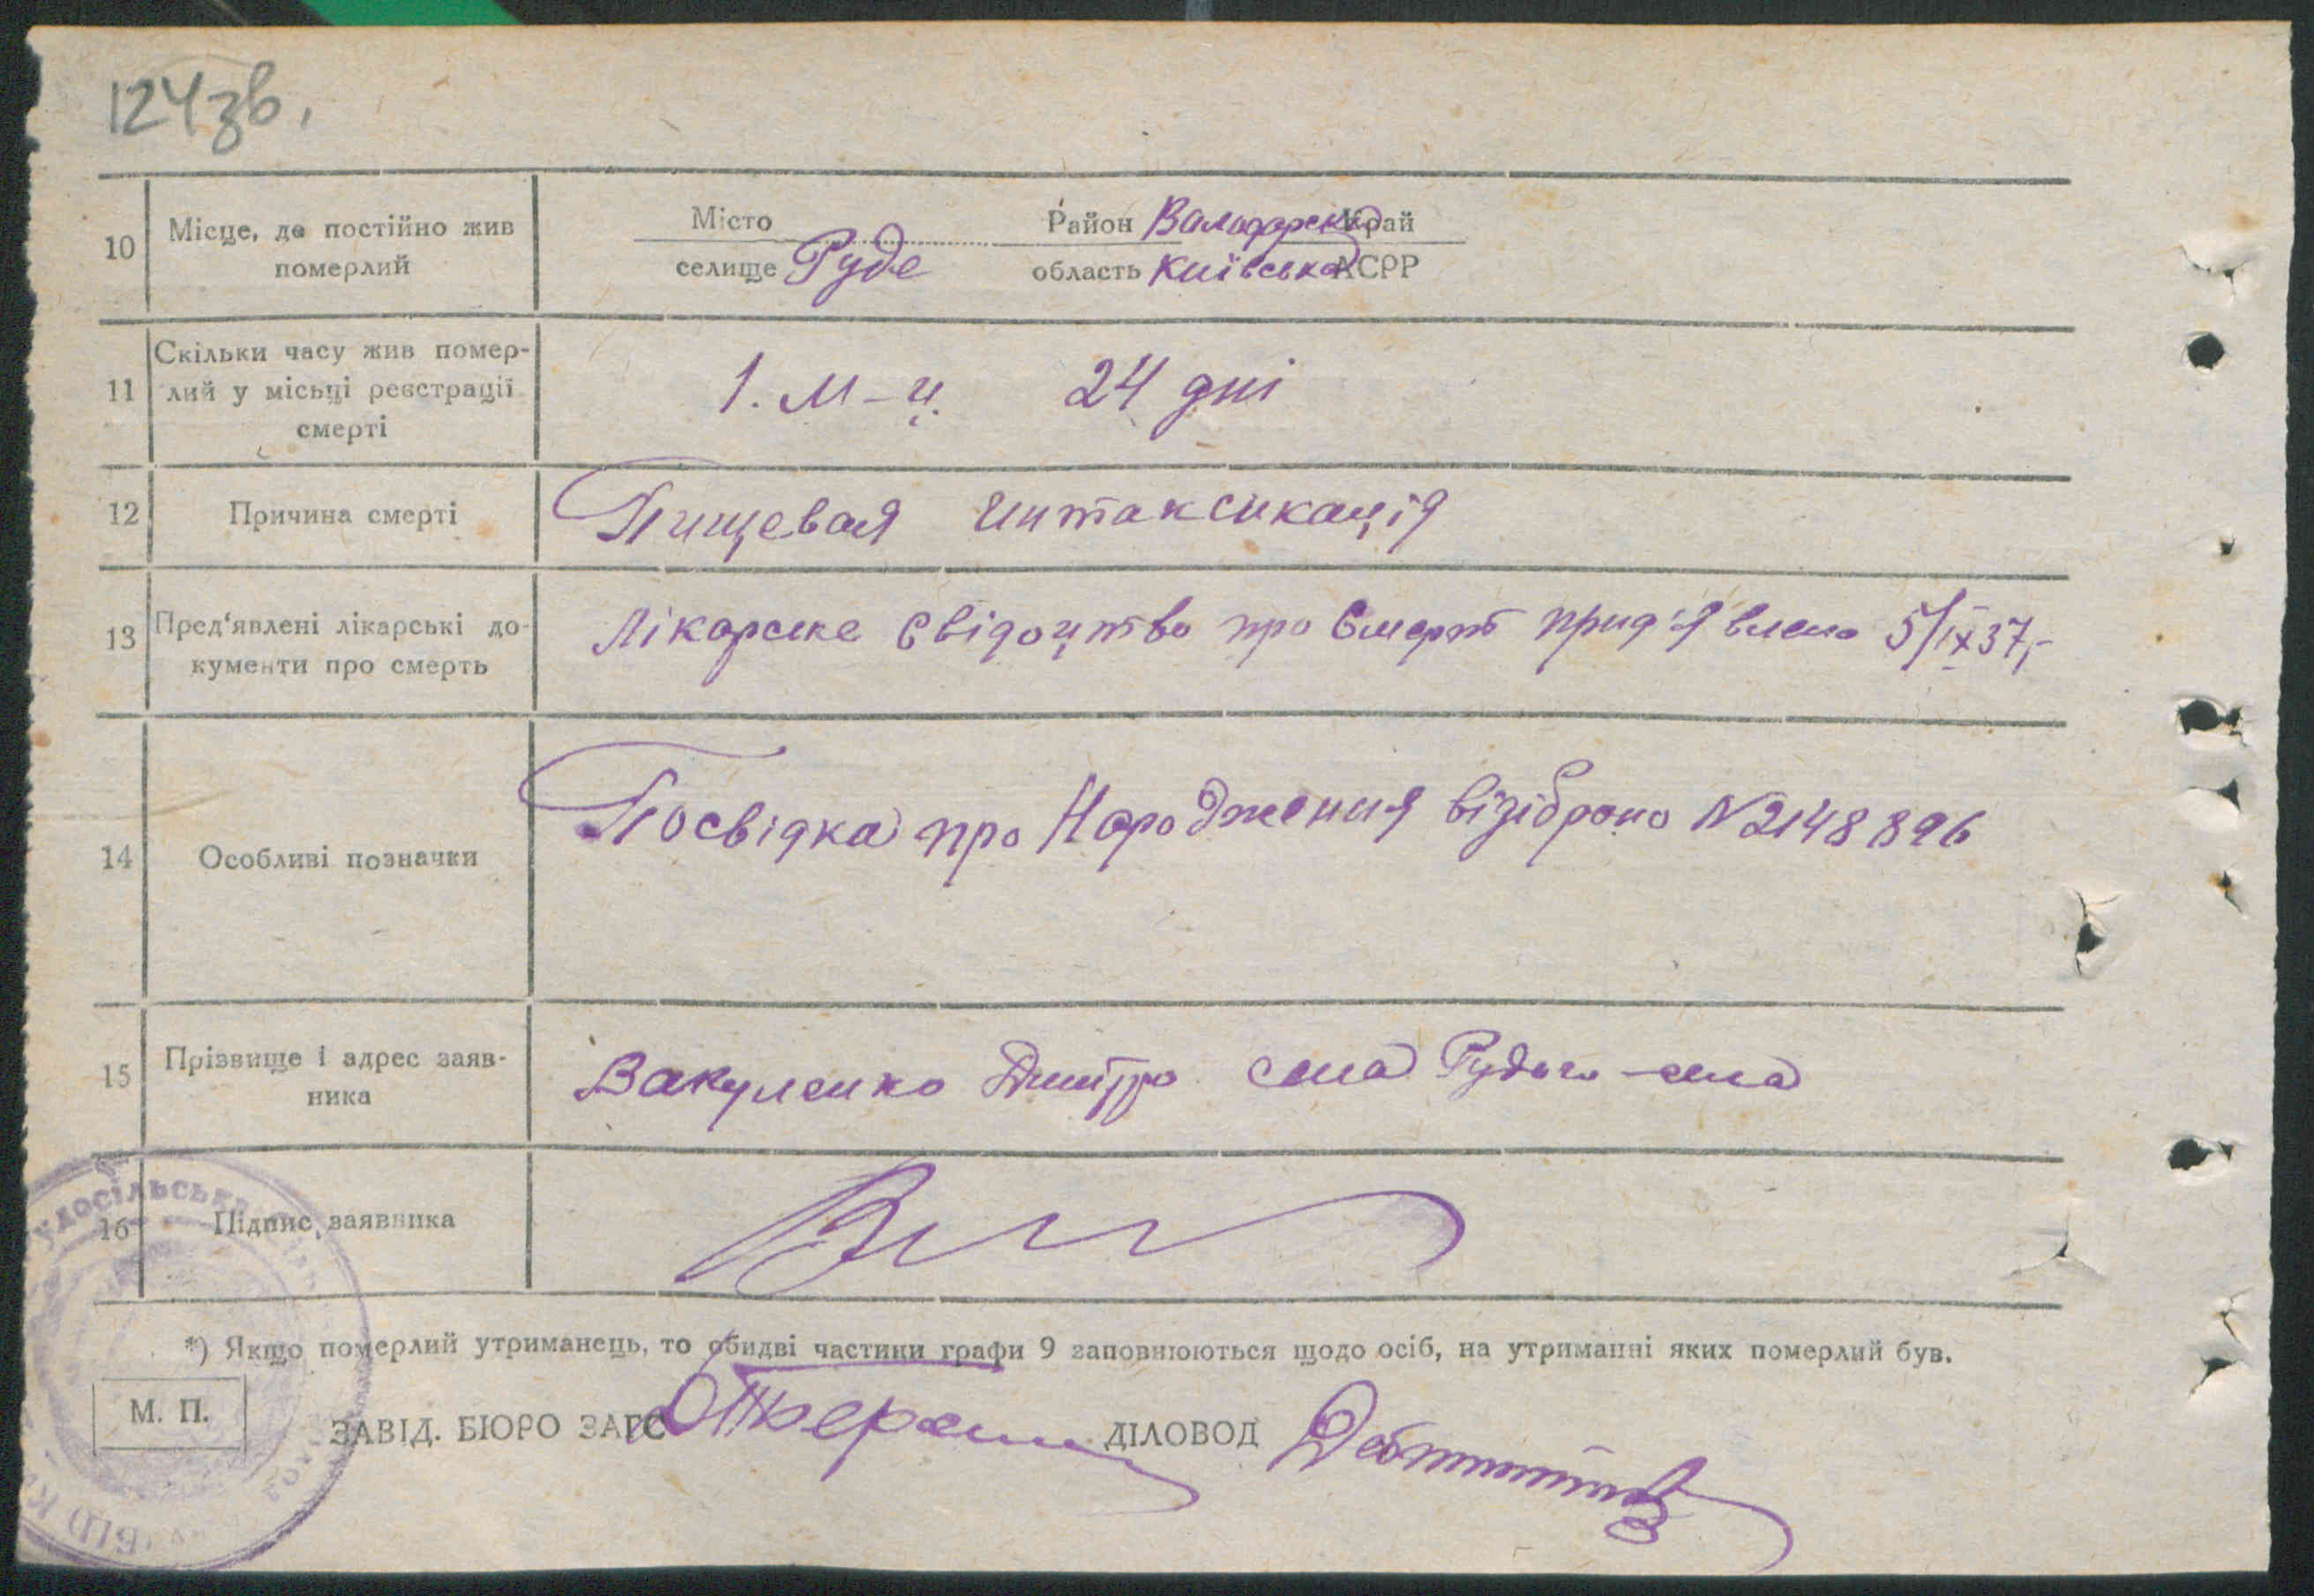 124зв.
10 Місце, де постійно жив померлий
Місто
селище Руде
Район Володарськ Край
область Київська АСРР
11 Скільки часу жив помер-
лий у місьці реєстрації
смерті
1. М-ц. 24 дні
12 Причина смерті
Пищевая интаксикація
13 Пред'явлені лікарські до-
кументи про смерть
Лікарске свідоцтво про Смерт прид'явлено 5/IX 37,-
14 Особливі позначки
Посвідка про Народження візібрано N 2148896
15 Прізвище і адрес заяв-
ника
Вакуленко Дмитро села Рудого-села
16 Підпис заявника
*) Якщо померлий утриманець, то обидві частини графи 9 заповнюються щодо осіб, на утриманні яких померлий був.
М. П.
ЗАВІД. БЮРО ЗАГС
ДІЛОВОД